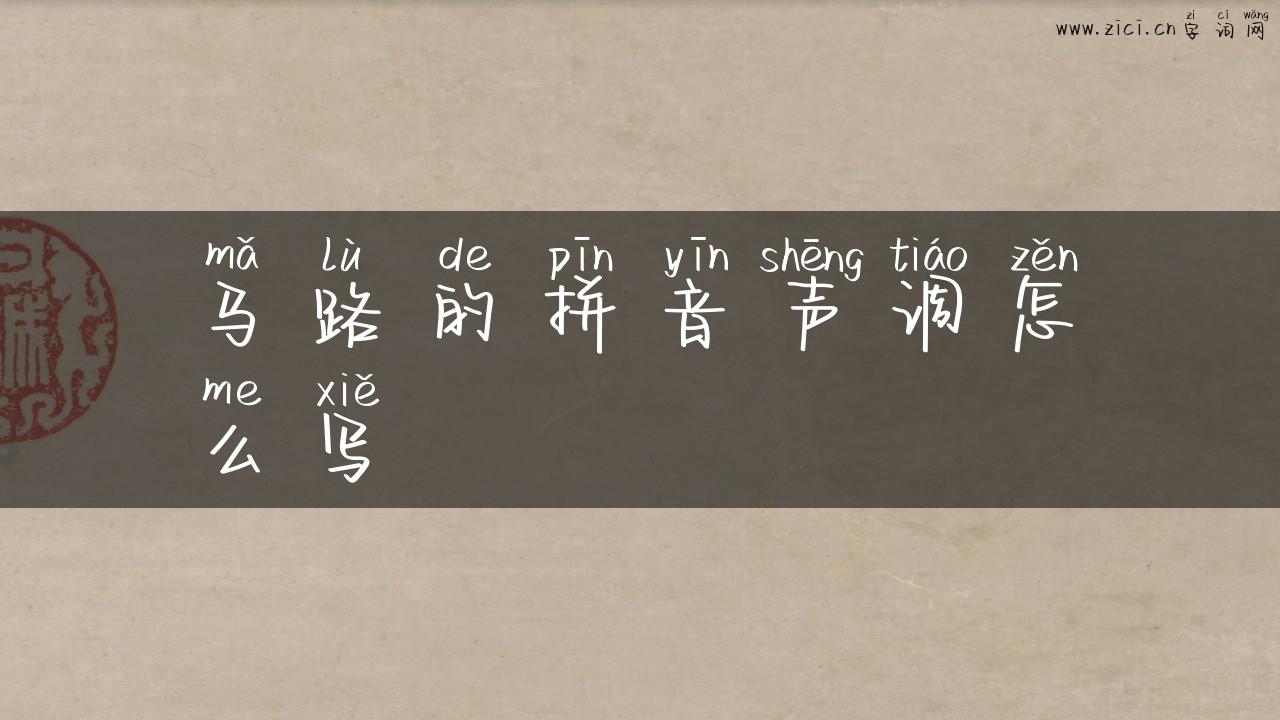 zì cí wǎng
www.zici.cn 字词网
mǎ lù de pīn yīn shēng tiáo zěn
马路的拼音声调怎
me xiě
么写